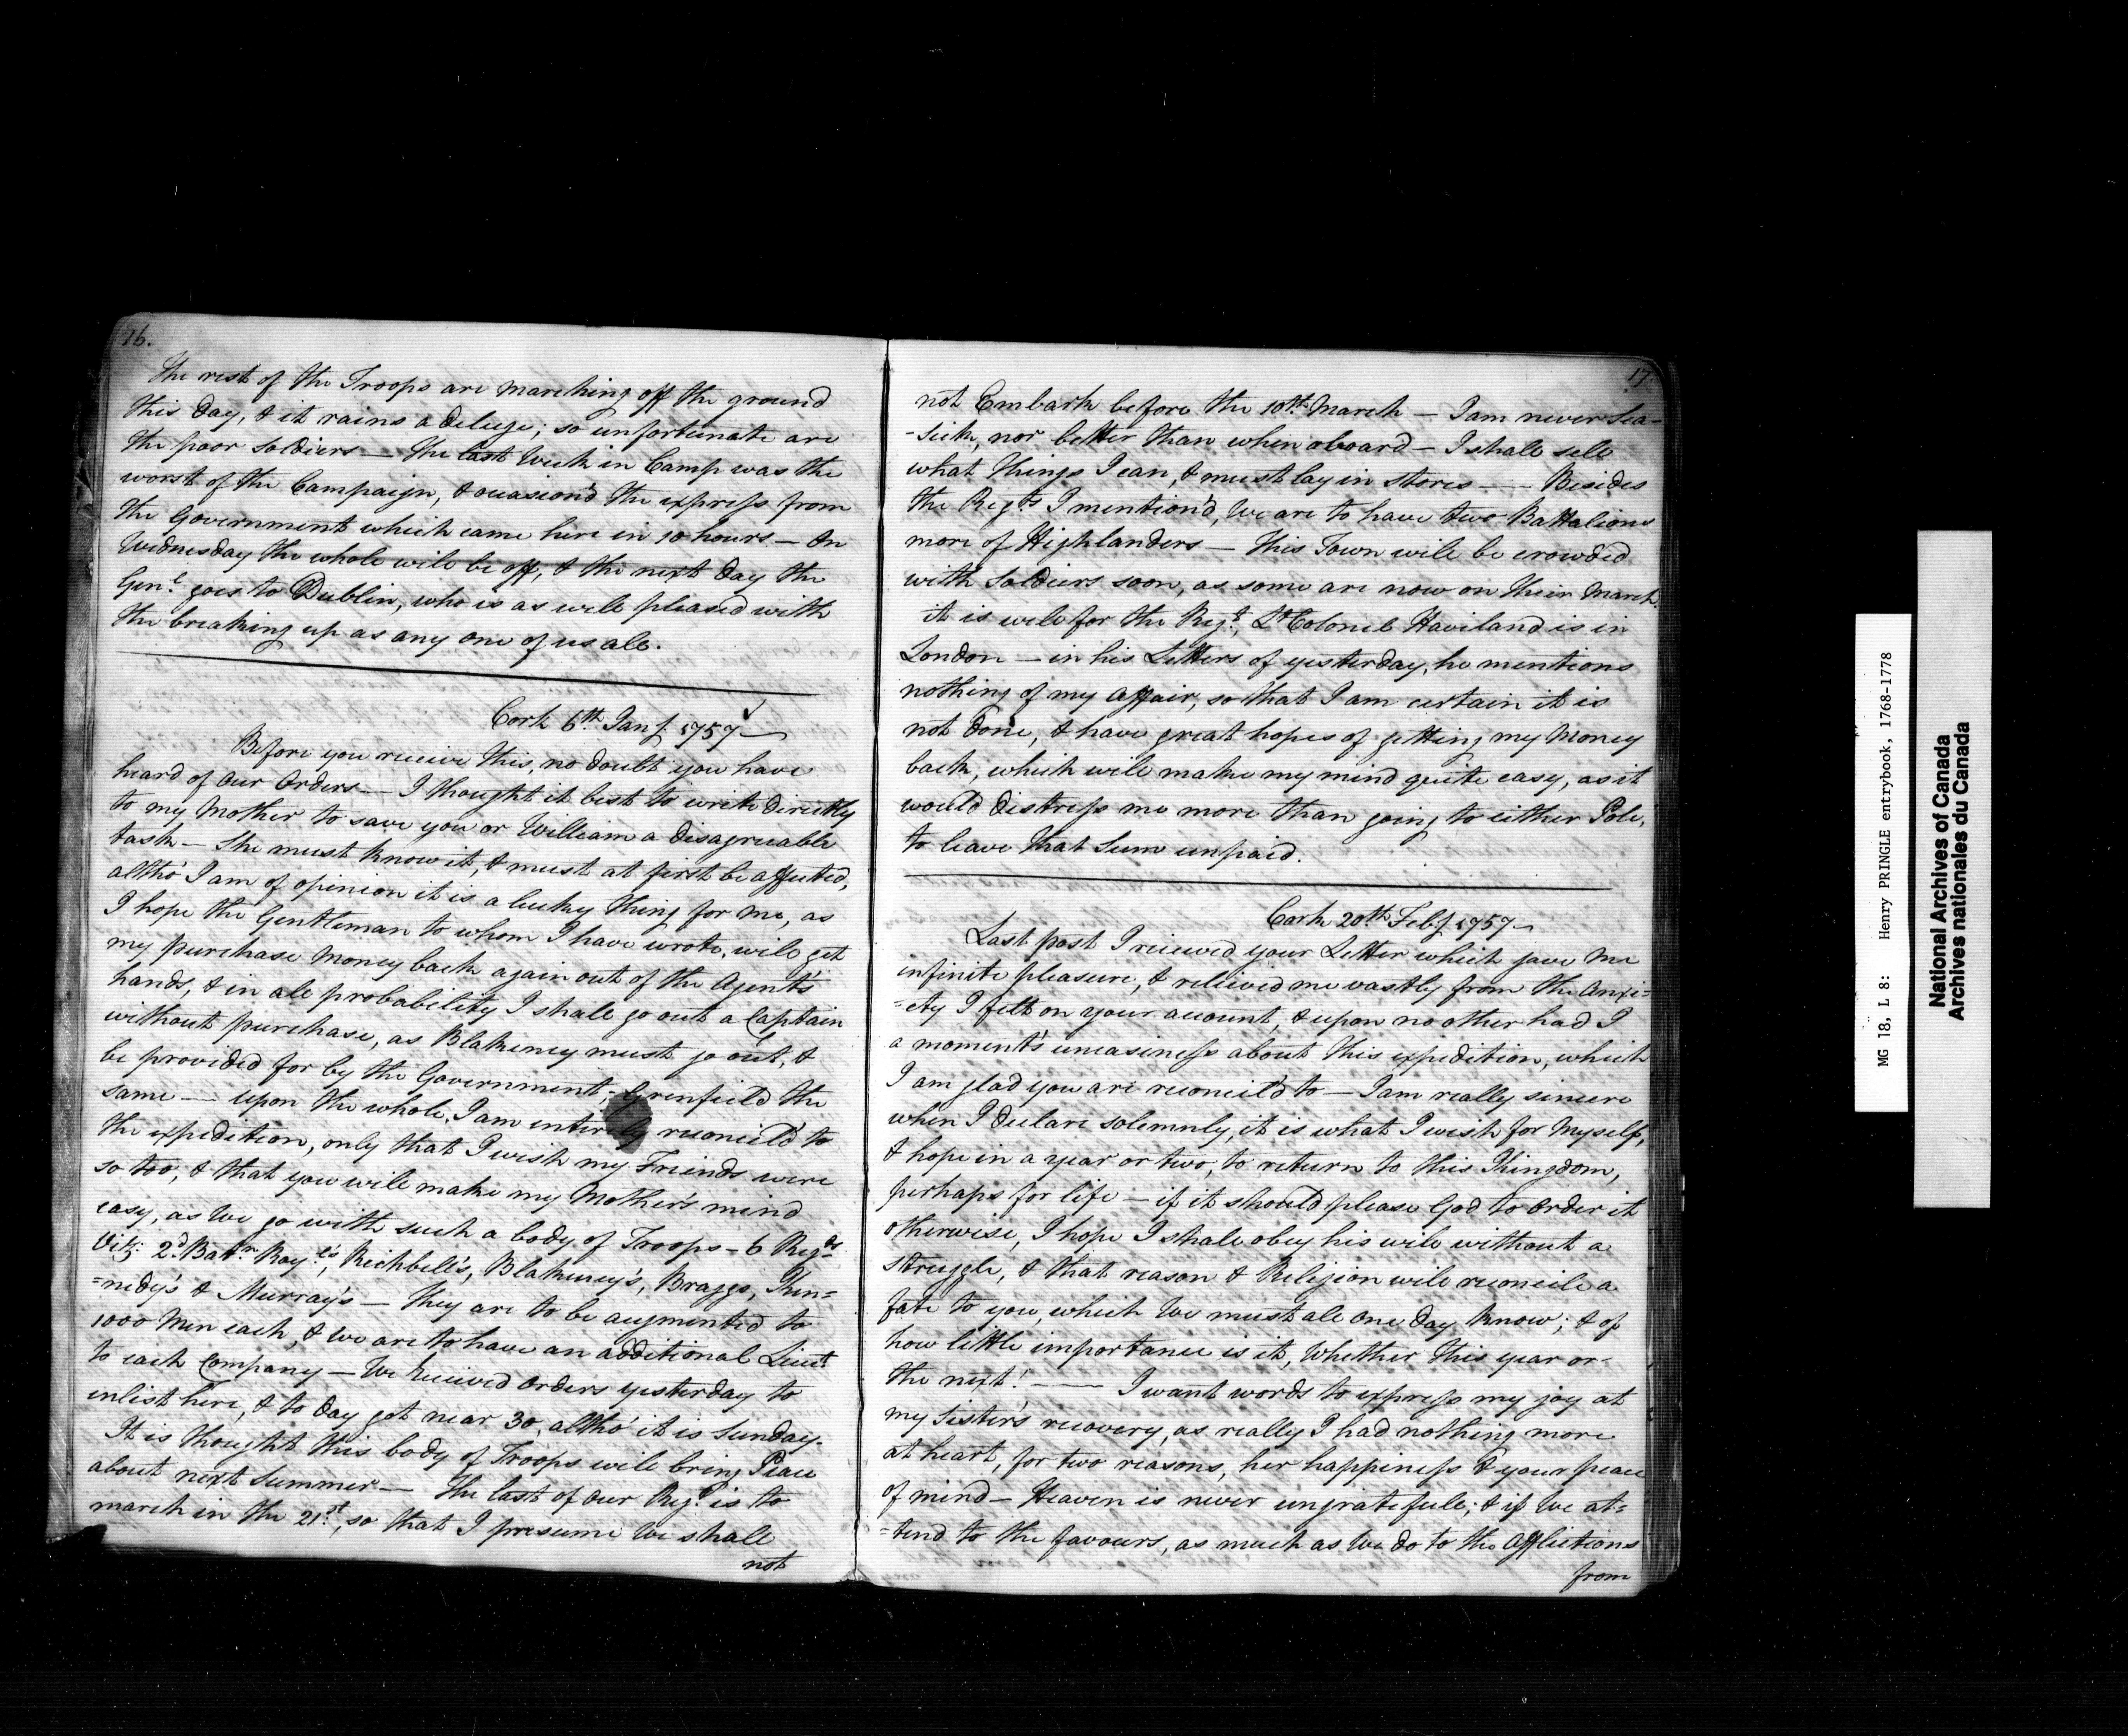 16.
The rest of the Troops are marching off the ground
this day, & it rains a deluge; so unfortunate are
the poor Soldiers — The last Week in Camp was the
worst of the Campaign, & occasion'd the express from
the Government which came here in 10 hours — On
Wednesday the whole will be off, & the next day the
Genl. goes to Dublin, who is as well pleased with
the breaking up as any one of us all.
Cork 6th. Jany. 1757 —
Before you receive this, no doubt you have
heard of our Orders — I thought it best to write directly
to my Mother to save you or William a disagreeable
task — She must know it, & must at first be affected,
altho' I am of opinion it is a lucky thing for me, as
I hope the Gentleman to whom I have wrote, will get
my purchase Money back again out of the Agent's
hands, & in all probability I shall go out a Captain
without purchase, as Blakeney must go out, &
be provided for by the Government - Grenfield the
same — upon the whole, I am entirely reconcil'd to
the expedition, only that I wish my Friends were
so too; & that you will make my Mother's mind
easy, as We go with such a body of Troops – 6 Regts.
Vizt. 2d. Batn. Royl's, Richbell's, Blakeney's, Braggs, Ken=
=nedy's & Murray's — They are to be augmented to
1000 Men each, & We are to have an additional Lieut
to each Company — We Received Orders yesterday to
enlist here, & to day got near 30, altho' it is Sunday.
It is thought this body of Troops will bring Peace
about next Summer — The last of our Regt. is to
march in the 21st., so that I presume We shall
not
17.
not Embark before the 10th. March — I am never Sea-
-Sick, nor better than when aboard — I shall sell
what things I can, & must lay in stores — Besides
the Regts I mention'd, We are to have two Battalions
more of Highlanders — This Town will be crowded
with Soldiers soon, as some are now on their March.
It is well for the Regt., Lt Colonel Haviland is in
London — in his Letters of yesterday, he mentions
nothing of my affair, so that I am certain it is
not done, & have great hopes of getting my Money
back, which will make my mind quite easy, as it
would distress me more than going to either Pole,
to leave that Sum unpaid.
Cork 20th. Feby. 1757 —
Last post I received your Letter which gave me
infinite pleasure, & relieved me vastly from the Anxi=
=ety I felt on your account, & upon no other had I
a moment's uneasiness about this expedition, which
I am glad you are reconcil'd to — I am really sincere
when I declare solemnly, it is what I wish for Myself,
& hope in a year or two, to return to this Kingdom,
perhaps for life — if it should please God to Order it
otherwise, I hope I shall obey his will without a
struggle, & that reason & Religion will reconcile a
fate to you, which We must all one day know; & of
how little importance is it, Whether this year or
the next! — I want words to express my joy at
my Sister's recovery, as really I had nothing more
at heart, for two reasons, her happiness & your peace
of mind — Heaven is never ungratefull; & if We at=
=tend to the favours, as much as We do to the Afflictions
from
MG 18, L 8: Henry PRINGLE entrybook, 1768-1778
National Archives of Canada
Archives nationales du Canada